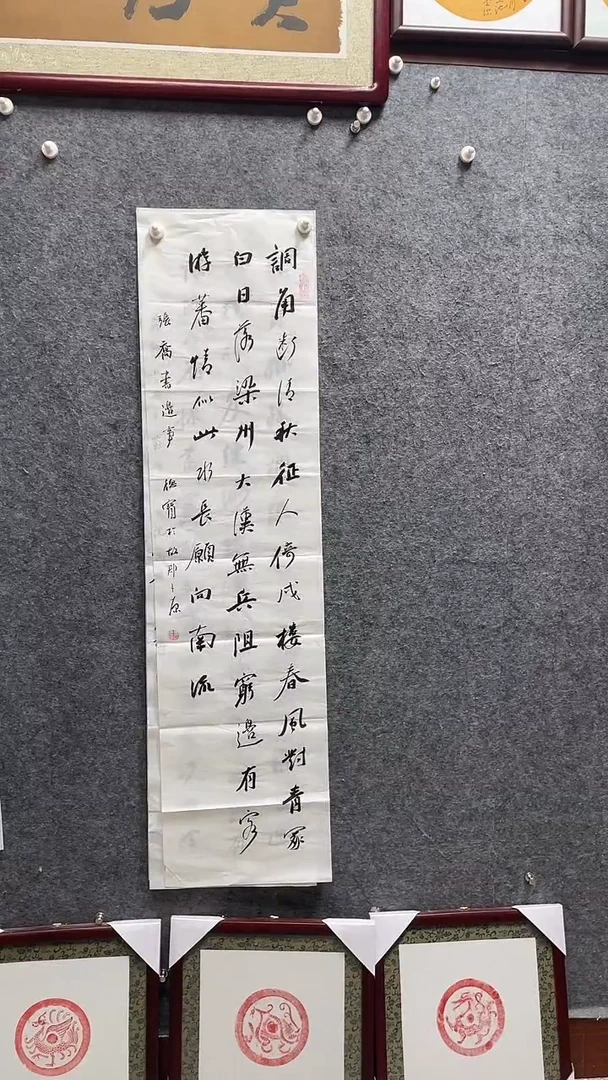 調角断清秋征人倚戍楼春風對青冢
白日落梁州大漠無兵阻窮邊有客
游蕃情似此水長願向南流
張喬書邊事 於故